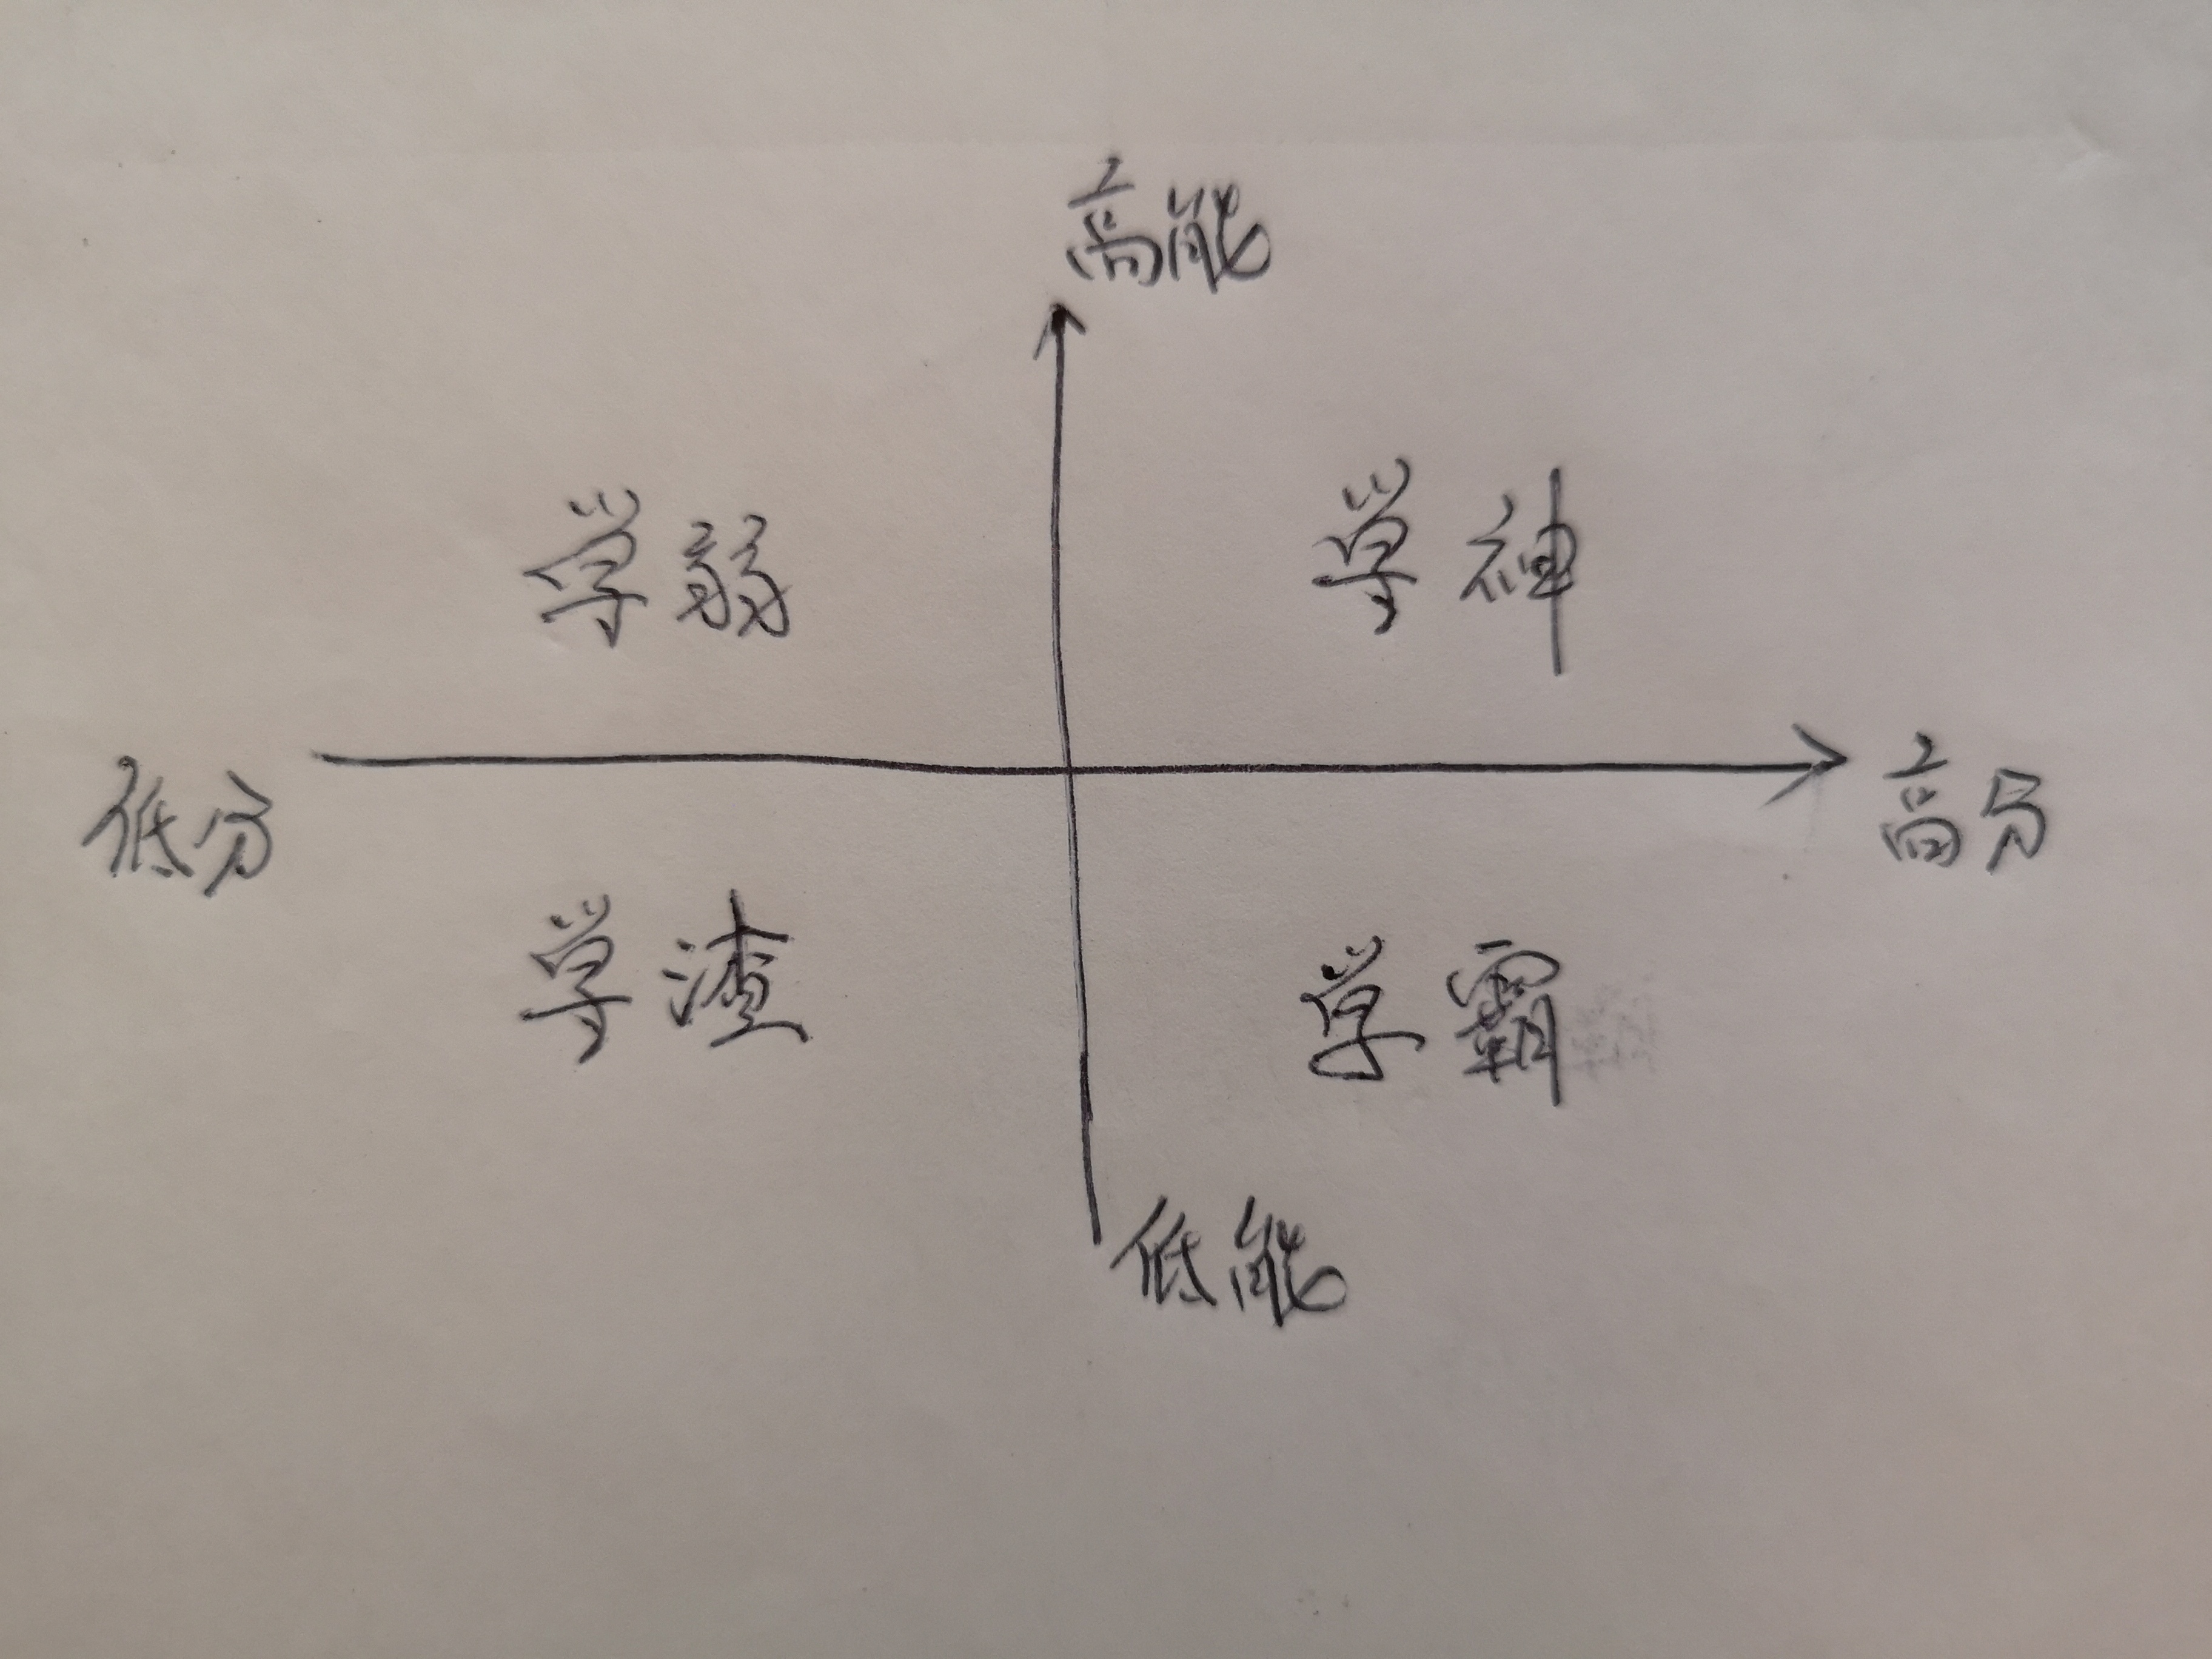 高能
学弱 学神
低分 高分
学渣 学霸
低能